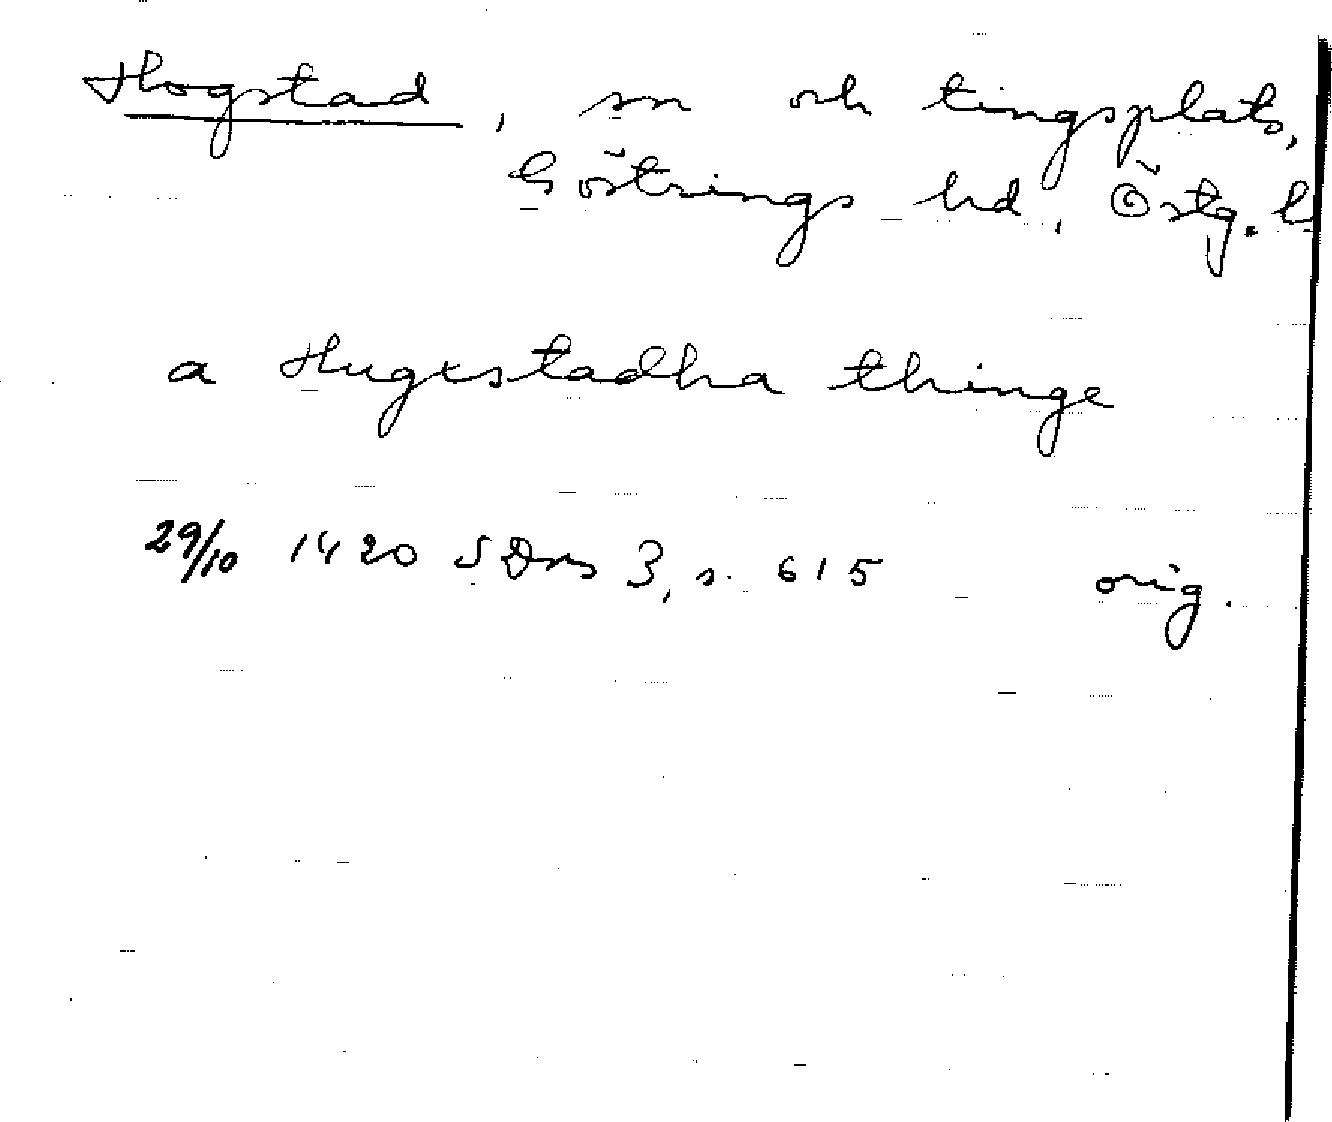 Hogstad, sn och tingsplats,
Göstrings hd, Östg. l
a Hugxstadha thinge
29/10 1420 SDns 3, s. 615 orig.